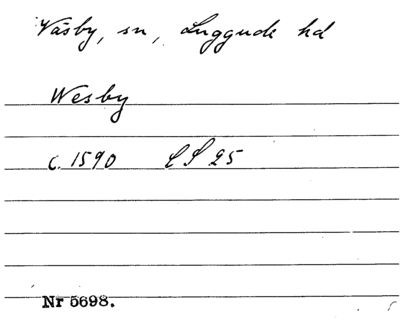 Väsby, sn, Luggude hd
Wesby
c. 1590 LS 25
Nr 5698.